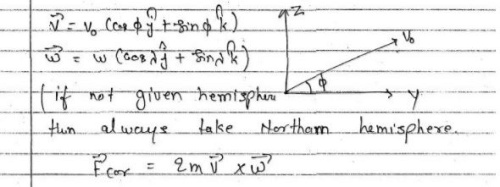 v⃗ = v₀ (cosϕ ĵ + sinϕ k̂)
w⃗ = w (cosλ ĵ + sinλ k̂)
( if not given hemisphere
thn always take Northarn hemisphere.
F⃗cor = 2m v⃗ × w⃗
Z
v₀
ϕ
Y